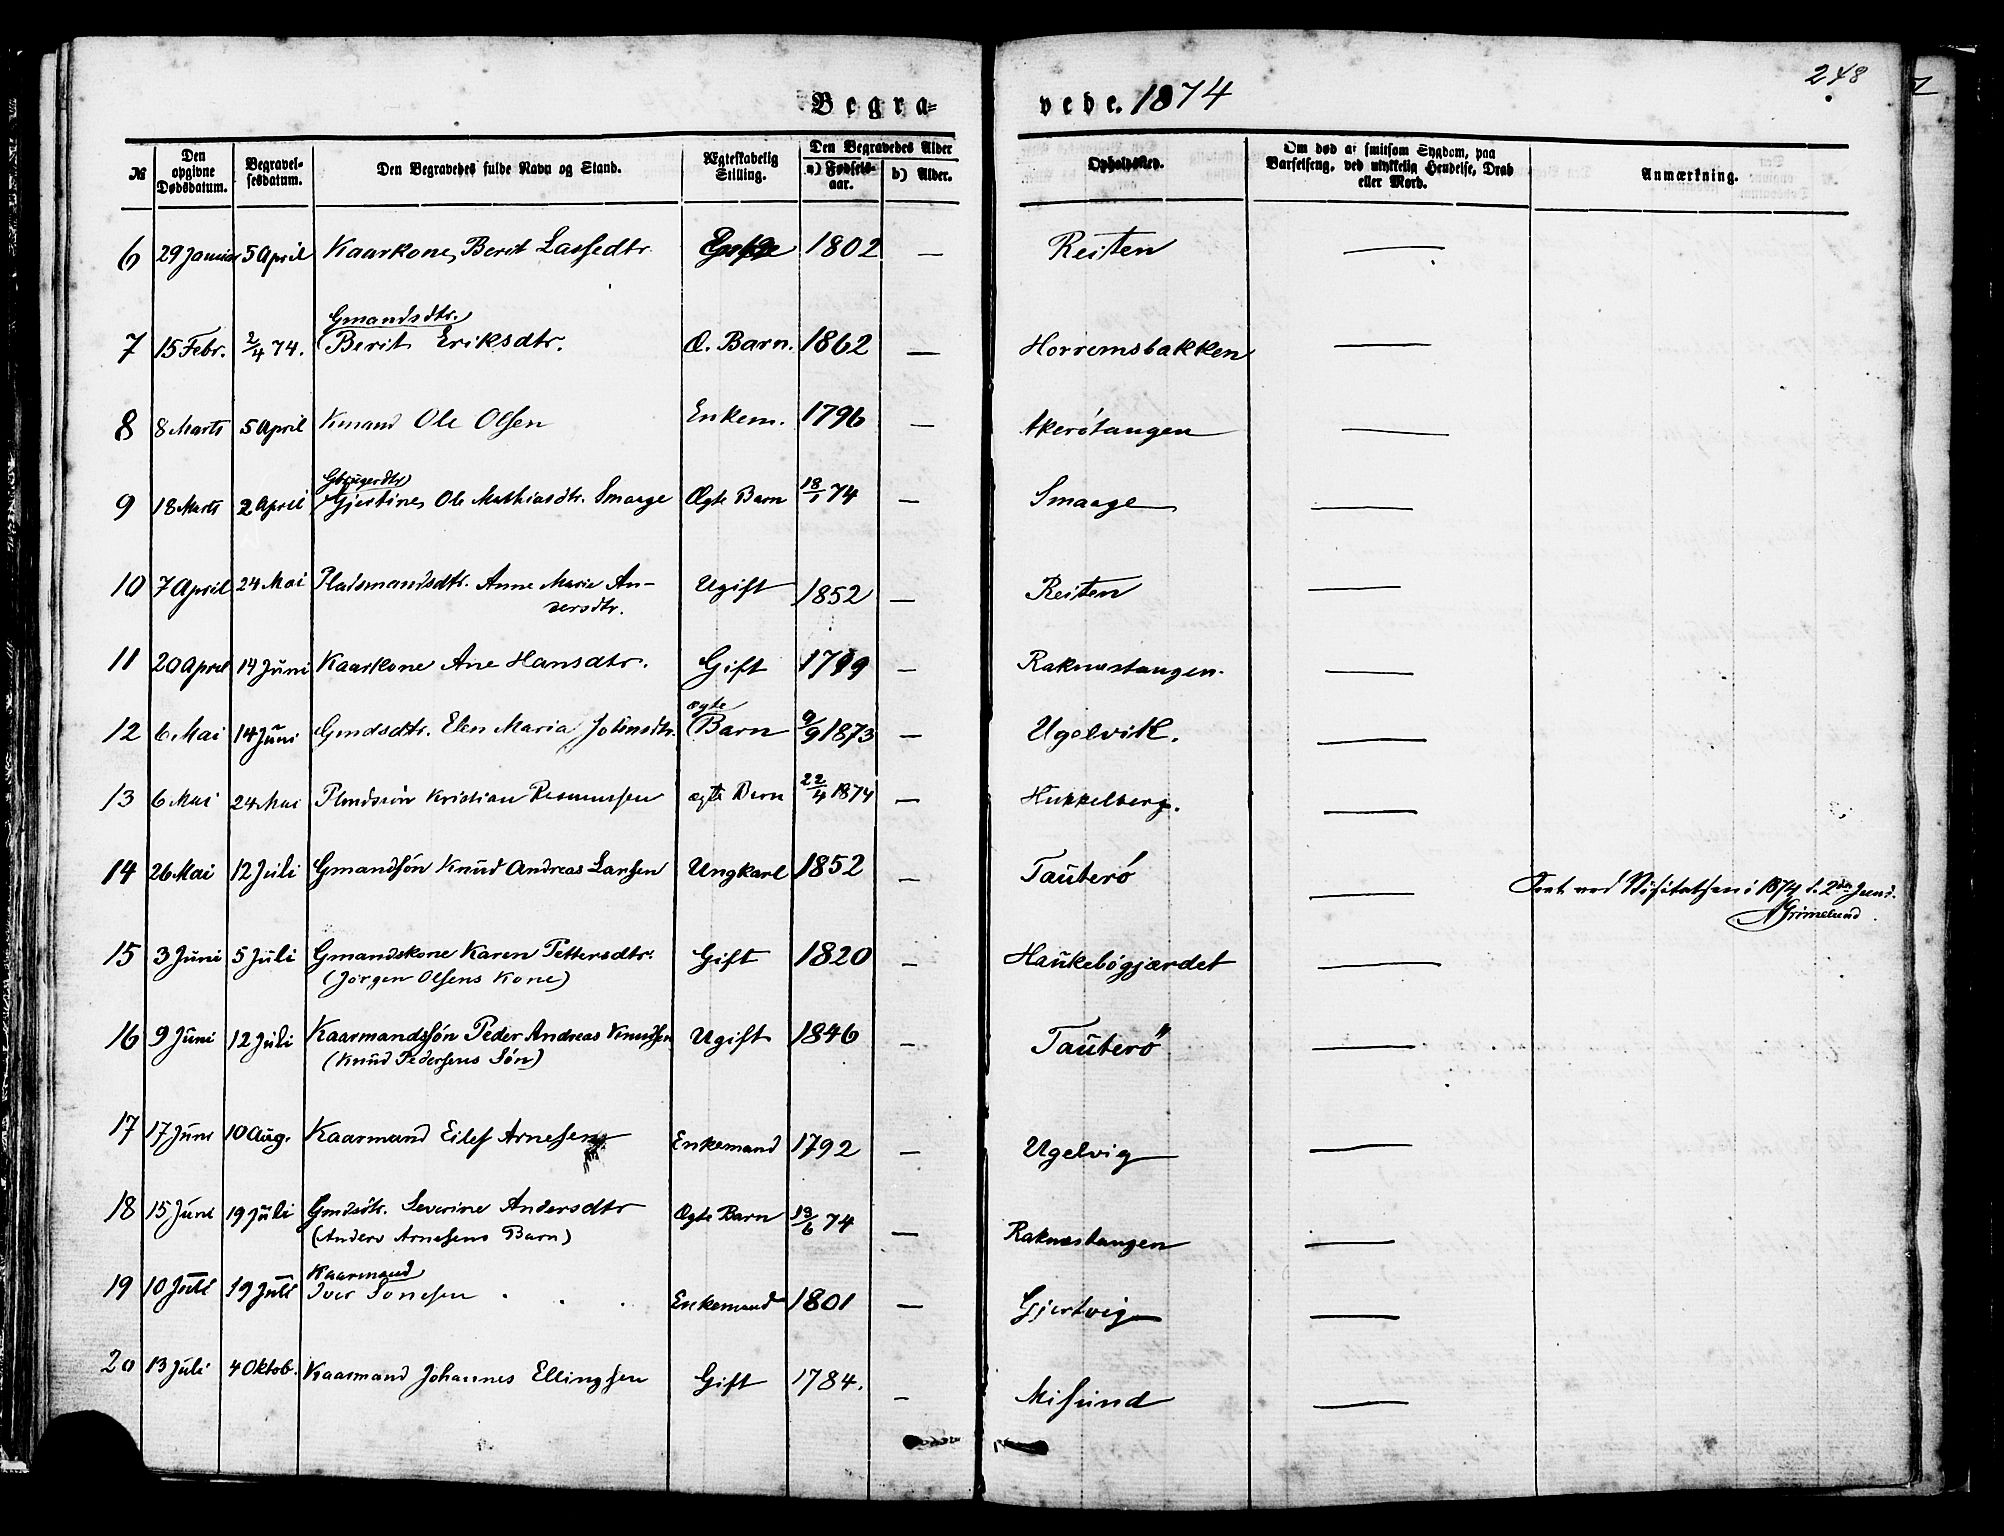 248
Begra-
vede. 1874
№
Den opgivne Dødsdatum.
Begravelsesdatum.
Den Begravedes fulde Navn og Stand.
Ægteskabelig Stilling.
Den Begravedes Alder
a) Fødselsaar.
b) Alder.
Opholdssted.
Om død af smitsom Sygdom, paa Barselseng, ved ulykkelig Hendelse, Drab eller Mord.
Anmærkning.
6 29 Januar 5 April Kaarkone, Berit Lassedtr. 1802 — Reiten —
Gmandsdtr.
7 15 Febr. 2/4 74. Berit Eriksdtr. Æ. Barn. 1862 — Horremsbakken —
8 8 Marts 5 April Kmand Ole Olsen Enkem. 1796 — Akerøtangen —
9 18 Marts 2 April Gjertine Ole Mathiasdtr. Smaage Ægte Barn 18/1 74 — Smaage —
10 7 April 24 Mai Pladsmandsdtr. Anne Marie An- Ugift 1852 — Reiten —
dersdtr.
11 20 April 14 Juni Kaarkone Ane Hansdtr. Gift 1799 — Raknestangen. —
ægte
12 6 Mai 14 Juni Gmdsdtr. Elen Maria Johnsdtr. Barn 9/9 1873 — Ugelvik. —
13 6 Mai 24 Mai Plmdssøn Kristian Rasmussen ægte Barn 22/4 1874 — Hukkelberg. —
14 26 Mai 12 Juli Gmandsøn Knud Andreas Larsen Ungkarl 1852 — Tauterø — ved Visitatsen i 1874 d. 2den Juni.
Grimelund
15 3 Juni 5 Juli Gmandskone Karen Pettersdtr. Gift 1820 — Haukebøgjærdet —
(Jørgen Olsens Kone)
16 9 Juni 12 Juli Kaarmandssøn Peder Andreas Knudsen Ugift 1846 — Tauterø —
(Knud Pedersens Søn)
17 17 Juni 10 Aug. Kaarmand Eilef Arnesen Enkemand 1792 — Ugelvig —
18 15 Juni 19 Juli Gmdsdtr. Severine Andersdtr Ægte Barn 13/6 74 — Raknestangen —
(Anders Arnesens Barn)
Kaarmand
19 10 Juli 19 Juli Iver Jonesen Enkemand 1801 — Gjertvig —
20 13 Juli 4 Oktob. Kaarmand Johannes Ellingsen Gift 1784. — Misund —